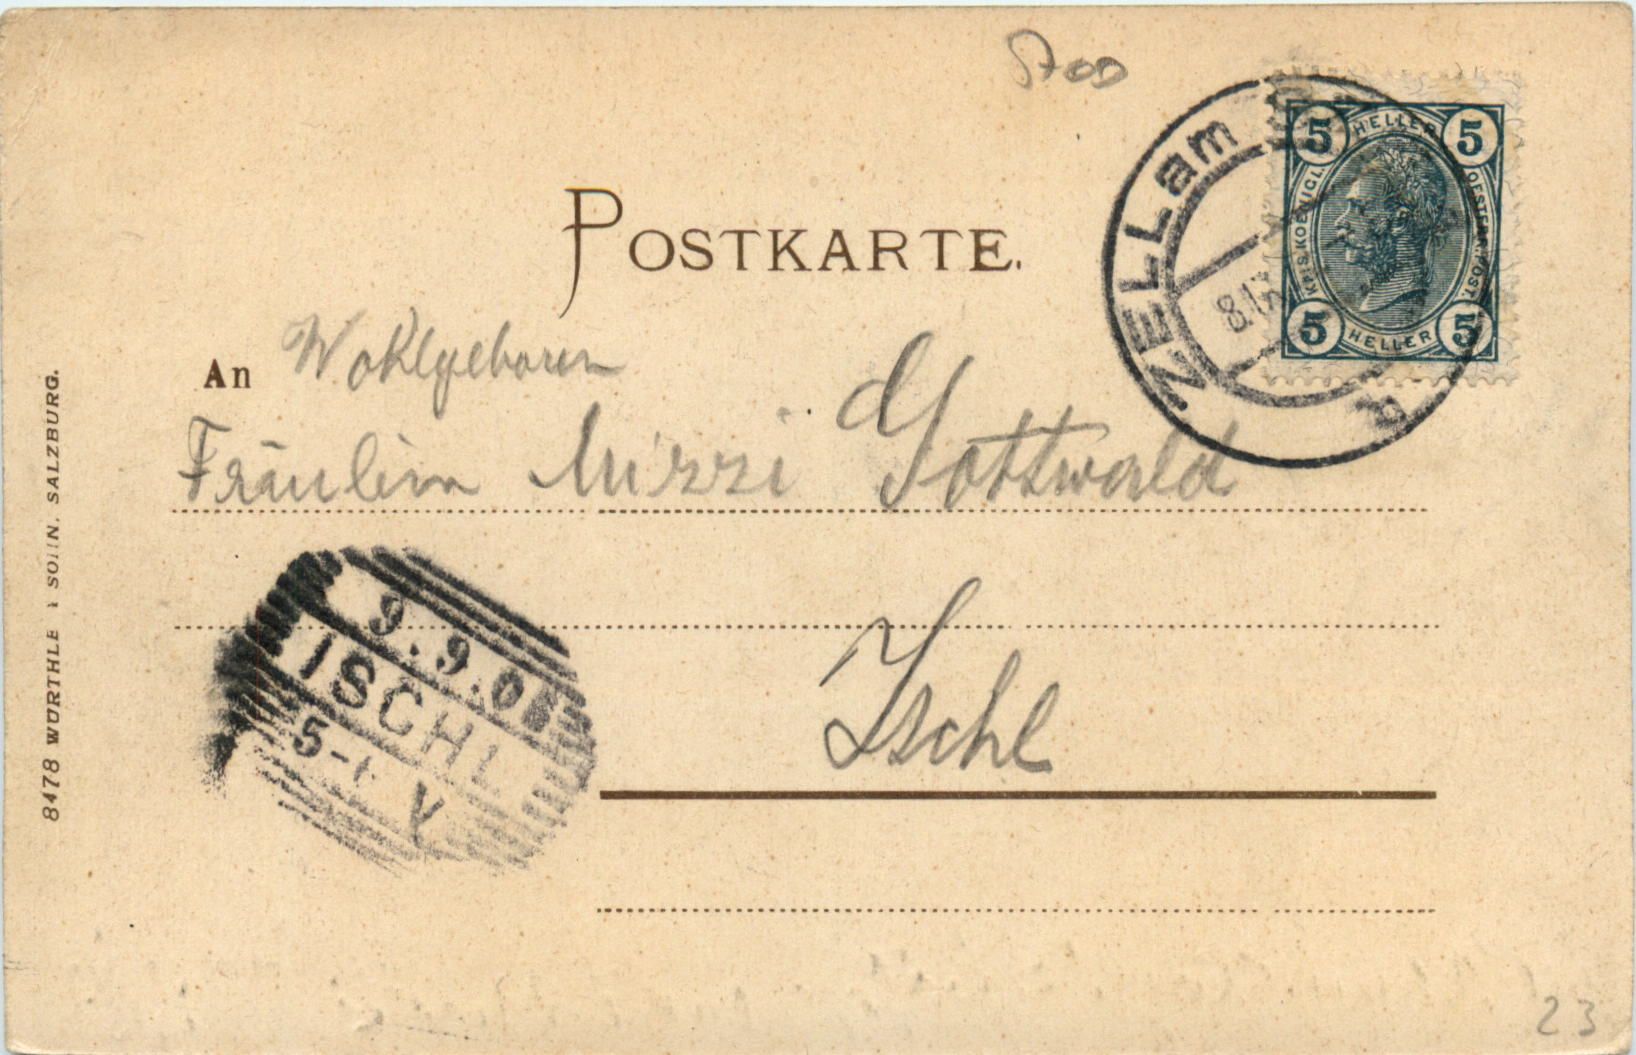 POSTKARTE.
An Wohlgeboren
Fräulein Mizzi Gottwald
Ischl
ZELL am
8.IX
5 HELLER 5
KAIS. KOENIGL. OESTERR. POST.
5 HELLER 5
9.9.0
ISCHL
5-
V
8478 WÜRTHLE SOHN. SALZBURG.
23